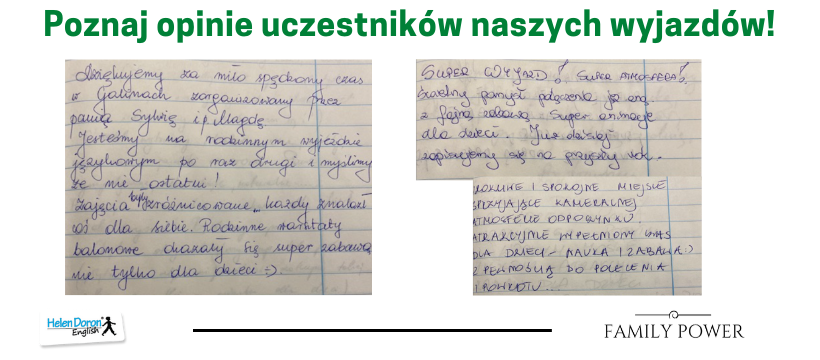 Poznaj opinie uczestników naszych wyjazdów!
Dziękujemy za miło spędzony czas
w Galinach zorganizowany przez
panią Sylwię i p. Magdę
Jesteśmy na rodzinnym wyjeździe
językowym po raz drugi i myślimy
że nie ostatni!
Zajęcia były zróżnicowane, każdy znalazł
coś dla siebie. Rodzinne warsztaty
balonowe okazały się super zabawą
nie tylko dla dzieci :)
SUPER WYJAZD! SUPER ATMOSFERA!
Świetny pomysł połączenia jęz. ang.
z fajną zabawą. Super animacje
dla dzieci. Już dzisiaj
zapisujemy się na przyszły rok.
I SPOKOJNE MIEJSCE
SPRZYJAJĄCE KAMERALNEJ
ATMOSFERZE ODPOCZYNKU.
ATRAKCYJNIE WYPEŁNIONY CZAS
DLA DZIECI - NAUKA I ZABAWA :)
Z PEWNOŚCIĄ DO POLECENIA
I POWROTU...
Helen Doron
English
FAMILY POWER